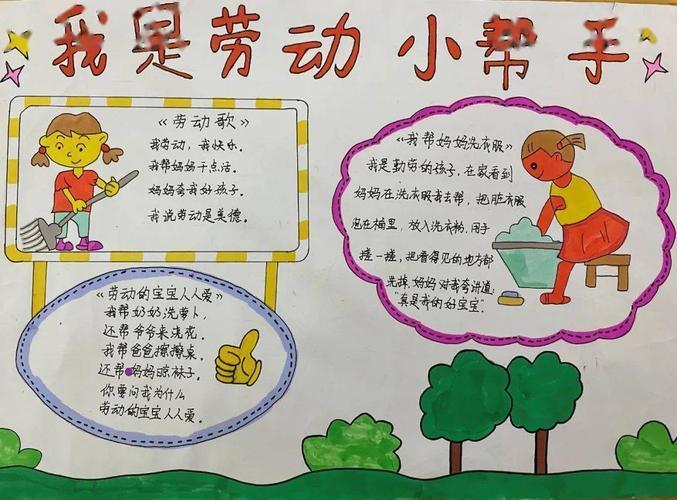 我是劳动小帮手
《劳动歌》
我劳动，我快乐。
我帮妈妈干点活。
妈妈夸我好孩子。
我说劳动是美德。
《劳动的宝宝人人爱》
我帮奶奶洗萝卜，
还帮爷爷来浇花。
我帮爸爸擦擦桌，
还帮妈妈晾袜子。
你要问我为什么
劳动的宝宝人人爱。
《我帮妈妈洗衣服》
我是勤劳的孩子，在家看到
妈妈在洗衣服去帮，把脏衣服
泡在桶里，放入洗衣粉，用手
搓一搓，把看得见的地方都
洗掉，妈妈对我夸讲道：
"真是我的好宝宝"。